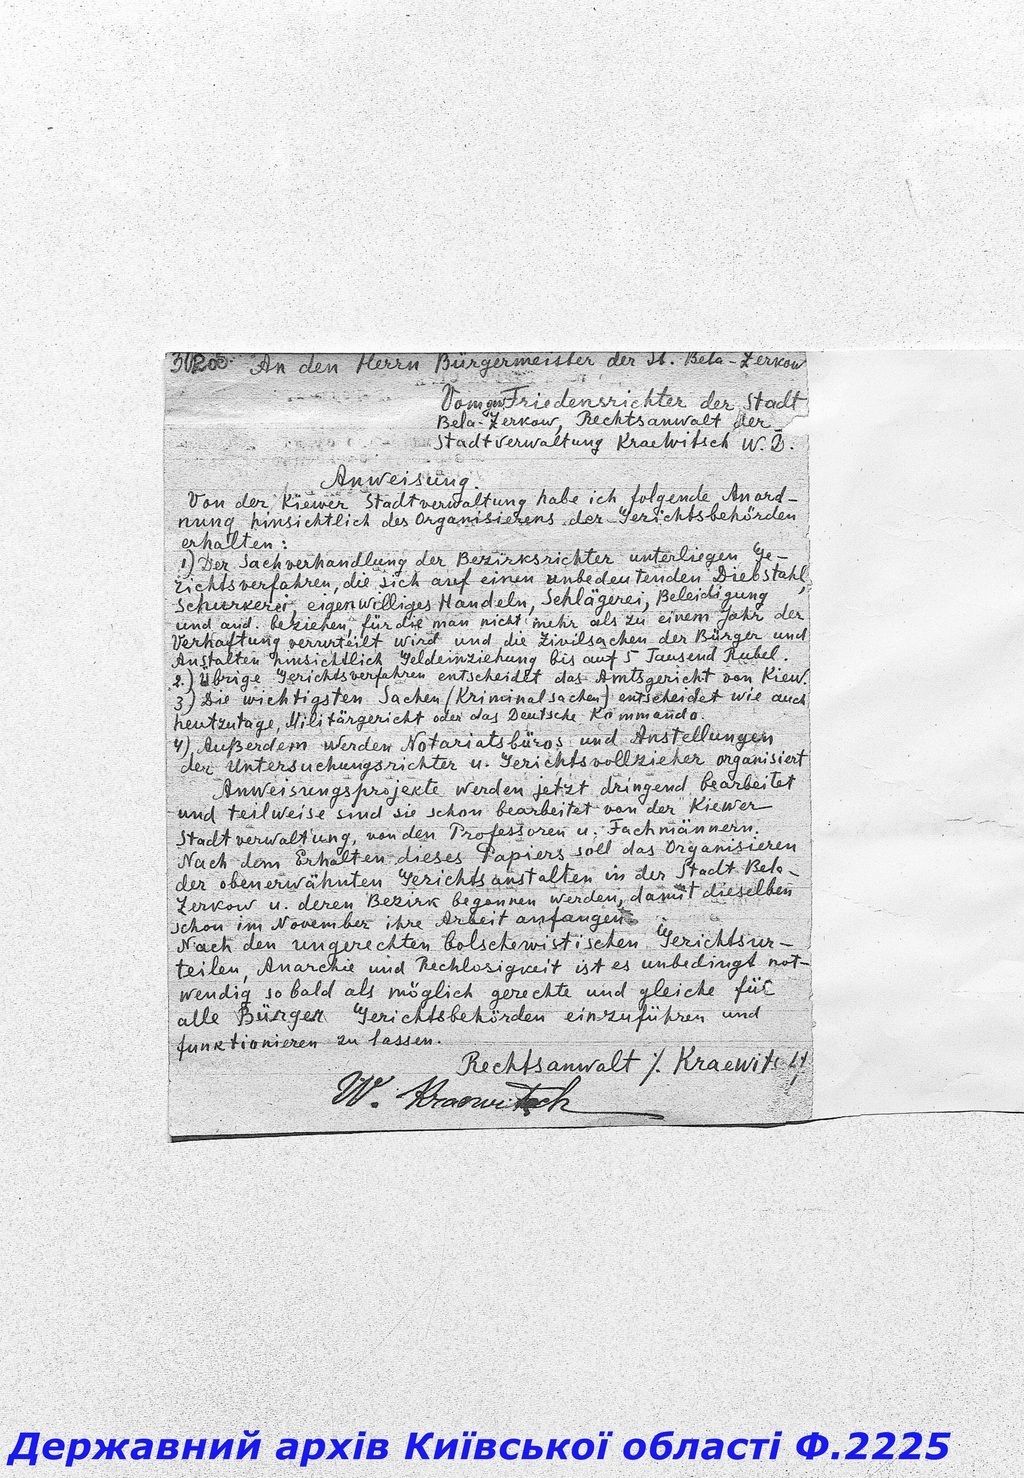 An den Herrn Bürgermeister der St. Bela-Zerkow
Vom gew. Friedensrichter der Stadt
Bela-Zerkow, Rechtsanwalt der
Stadtverwaltung Kraewitsch W.
Anweisung.
Von der Kiewer Stadtverwaltung habe ich folgende Anord-
nung hinsichtlich des Organisierens der Gerichtsbehörden
erhalten:
1) Der Sachverhandlung der Bezirksrichter unterliegen Ge-
richtsverfahren, die sich auf einen unbedeutenden Diebstahl,
Schurkerei, eigenwilliges Handeln, Schlägerei, Beleidigung
und and. beziehen, für die man nicht mehr als zu einem Jahr der
Verhaftung verurteilt wird und die Zivilsachen der Bürger und
Anstalten hinsichtlich Geldeinziehung bis auf 5 Tausend Rubel.
2.) Übrige Gerichtsverfahren entscheidet das Amtsgericht von Kiew.
3) Die wichtigsten Sachen (Kriminalsachen) entscheidet wie auch
heutzutage, Militärgericht oder das Deutsche Kommando.
4) Außerdem werden Notariatsbüros und Anstellungen
der Untersuchungsrichter u. Gerichtsvollzieher organisiert
Anweisungsprojekte werden jetzt dringend bearbeitet
und teilweise sind sie schon bearbeitet von der Kiewer
Stadtverwaltung, von den Professoren u. Fachmännern.
Nach dem Erhalten dieses Papiers soll das Organisieren
der obenerwähnten Gerichtsanstalten in der Stadt Bela-
Zerkow u. deren Bezirk begonnen werden, damit dieselben
schon im November ihre Arbeit anfangen.
Nach den ungerechten bolschewistischen Gerichtsur-
teilen, Anarchie und Rechlosigkeit ist es unbedingt not-
wendig so bald als möglich gerechte und gleiche für
alle Bürger Gerichtsbehörden einzuführen und
funktionieren zu lassen.
Rechtsanwalt /. Kraewitsch
W. Kraewitsch
Державний архів Київської області Ф.2225